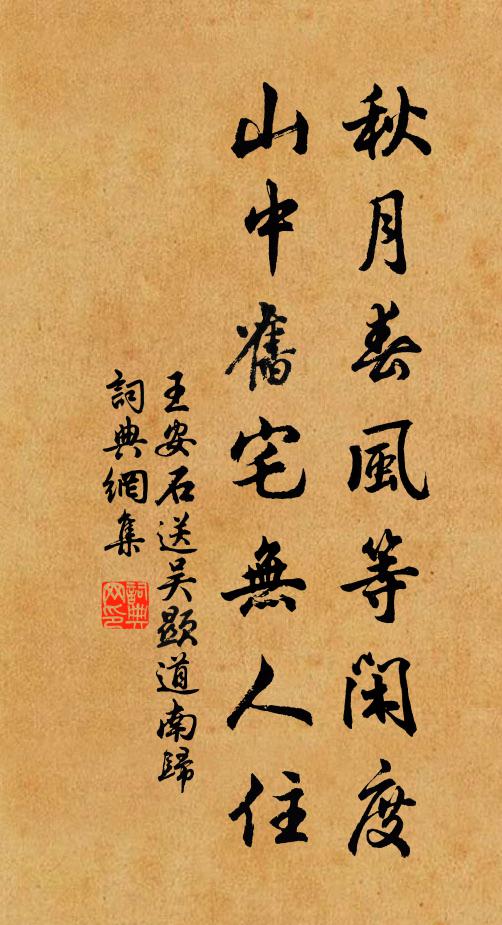 秋月春風等閑度
山中舊宅無人住
王安石送吴顯道南歸
詞典網集
詞典
网印